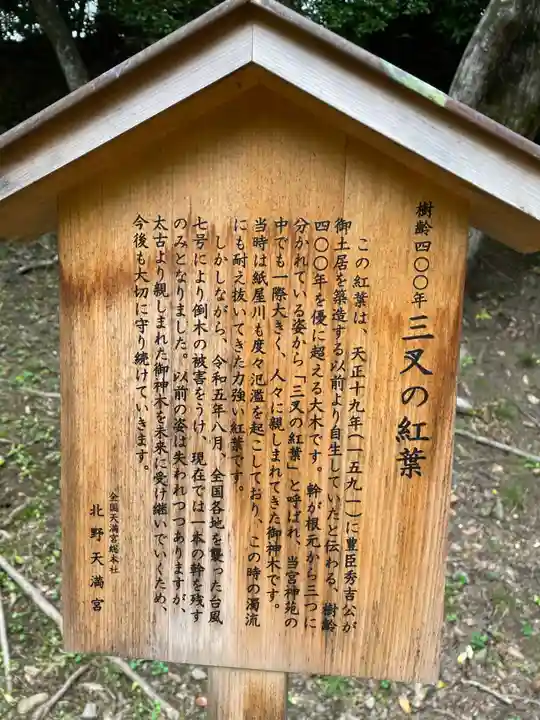 樹齢四〇〇年 三叉の紅葉
この紅葉は、天正十九年(一五九一)に豊臣秀吉公が
御土居を築造する以前より自生していたと伝わる、樹齢
四〇〇年を優に超える大木です。幹が根元から三つに
分かれている姿から「三叉の紅葉」と呼ばれ、当宮神苑の
中でも一際大きく、人々に親しまれてきた御神木です。
当時は紙屋川も度々氾濫を起こしており、この時の濁流
にも耐え抜いてきた力強い紅葉です。
しかしながら、令和五年八月、全国各地を襲った台風
七号により倒木の被害をうけ、現在では一本の幹を残す
のみとなりました。以前の姿は失われつつありますが、
太古より親しまれた御神木を未来に受け継いでいくため、
今後も大切に守り続けていきます。
全国天満宮総本社
北野天満宮